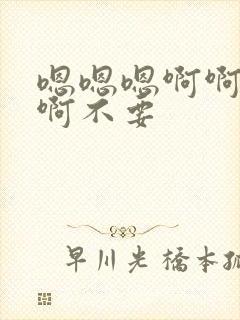 嗯嗯嗯啊啊
啊不要
早川光橋本孤